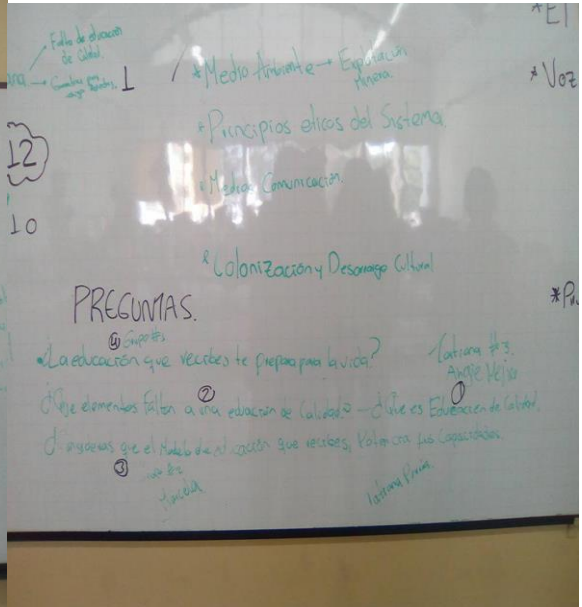 *El
Falta de educación
de Calidad.
1
*Medio Ambiente → Explotación
Minera
*Voz
*Principios eticos del Sistema.
12
*Medios Comunicación.
10
*Colonización y Desarraigo Cultural
PREGUNTAS.
④ Grupo #5
•La educación que recibes te prepara para la vida?
Tatiana #3.
①
②
¿Que elementos faltan a una educación de Calidad? - ¿Que es Educación de Calidad.
que el Modelo de educación que recibes, Potencia tus Capacidades.
③
Marcela
Tatiana